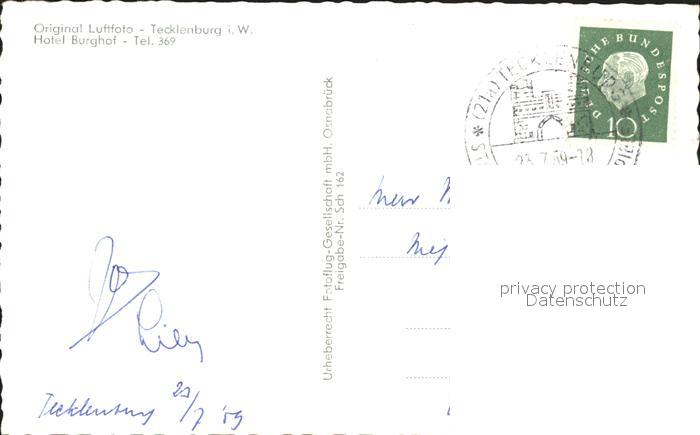 Original Luftfoto - Tecklenburg i. W.
Hotel Burghof - Tel. 369
Urheberrecht Fotoflug-Gesellschaft mbH. Osnabrück
Freigabe-Nr. Sch 162
DEUTSCHE BUNDESPOST
10
(21a) TECKLENBURG
23.7.59-18
Herr
privacy protection
Datenschutz
Tecklenburg 23/7 59